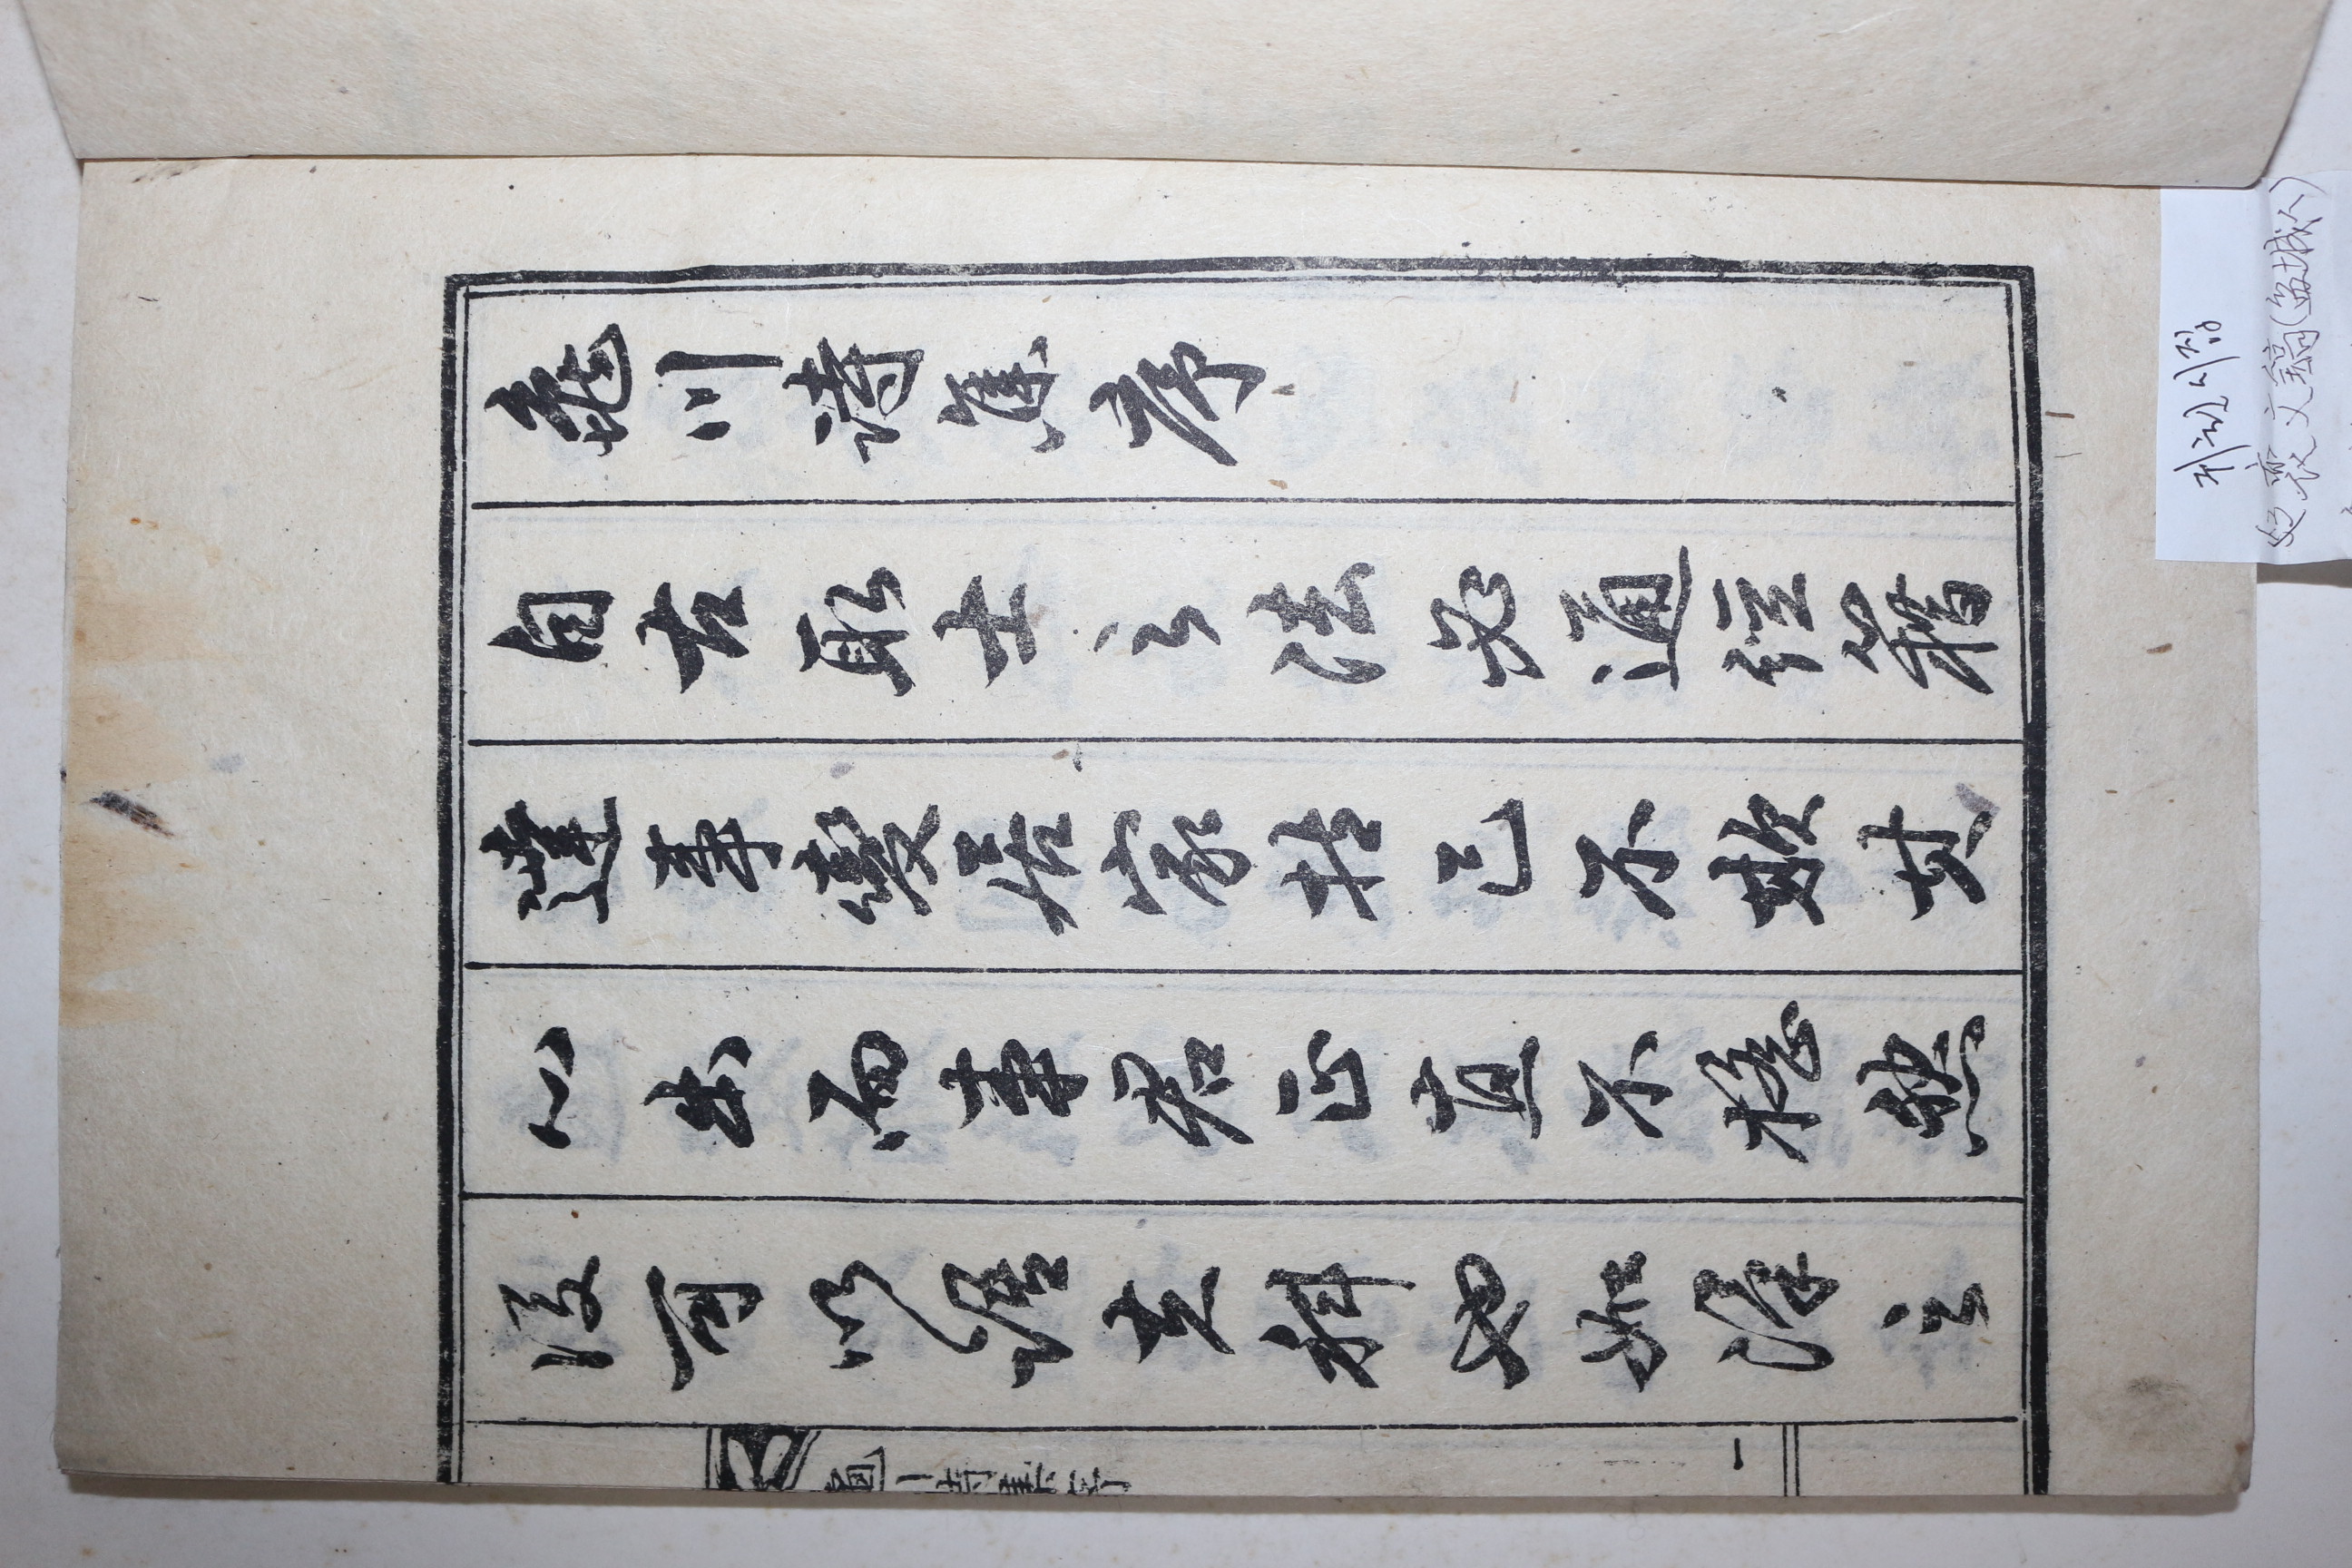 龜川詩集序
自古取士之法必通經籍
達事變居家持己不欺其
心出而事君正直不搖然
後可以語其科也如澤之
龜川詩集序
一
귀천시집
裵文鎬(盆城人)